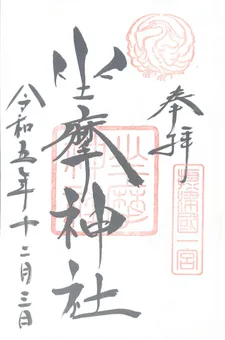 奉拝
摂津國一宮
坐摩神社
令和五年十二月三日